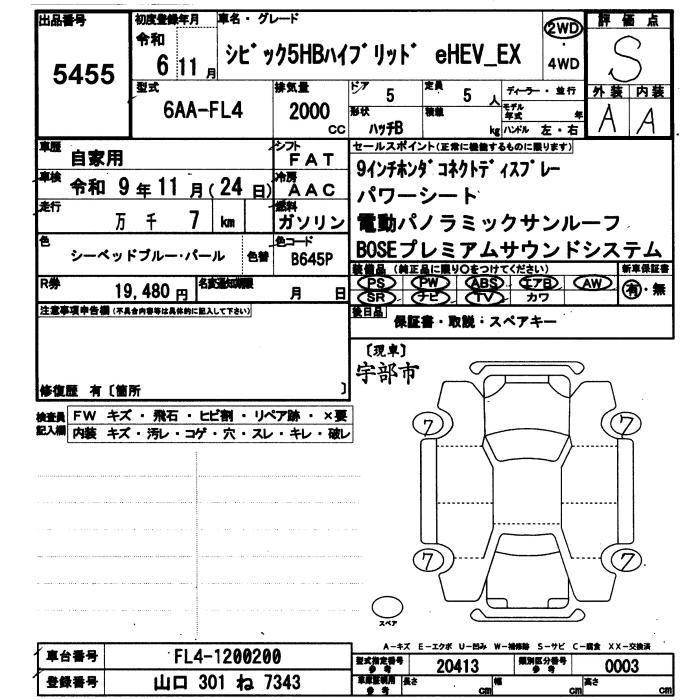 出品番号
5455
初度登録年月
令和
6 11 月
車名・グレード
シビック5HBハイブリッド eHEV_EX
2WD
・
4WD
評価点
S
外装 内装
A A
型式
6AA-FL4
排気量
2000
CC
ドア 5
定員 5 人
形状
ハッチB
積載 kg
ディーラー・並行
モデル年式 年
ハンドル 左・右
車歴 自家用
シフト
FAT
車検 令和 9 年 11 月(24 日)
冷房
AAC
走行 万 千 7 km
燃料
ガソリン
色 シーベッドブルー・パール 色替
色コード
B645P
R券 19,480 円
名変通知期限 月 日
セールスポイント(正常に機能するものに限ります)
9インチホンダコネクトディスプレー
パワーシート
電動パノラミックサンルーフ
BOSEプレミアムサウンドシステム
装備品 (純正品に限り○をつけてください)
PS PW ABS エアB AW
SR ナビ TV カワ
新車保証書
有・無
後日品
保証書・取説・スペアキー
注意事項申告欄(不具合内容等は具体的に記入して下さい)
修復歴 有〔箇所 〕
検査員記入欄
FW キズ・飛石・ヒビ割・リペア跡・×要
内装 キズ・汚レ・コゲ・穴・スレ・キレ・破レ
〔現車〕
宇部市
7 7
7 7
スペア
A-キズ E-エクボ U-凹み W-補修跡 S-サビ C-腐食 XX-交換済
車台番号 FL4-1200200
登録番号 山口 301 ね 7343
型式指定番号
参考
20413
類別区分番号
参考
0003
車庫証明用
参考
長さ cm 幅 cm 高さ cm